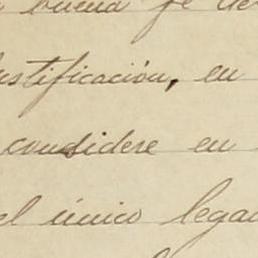 buena fe de
justificación, en
considere en
el único legad